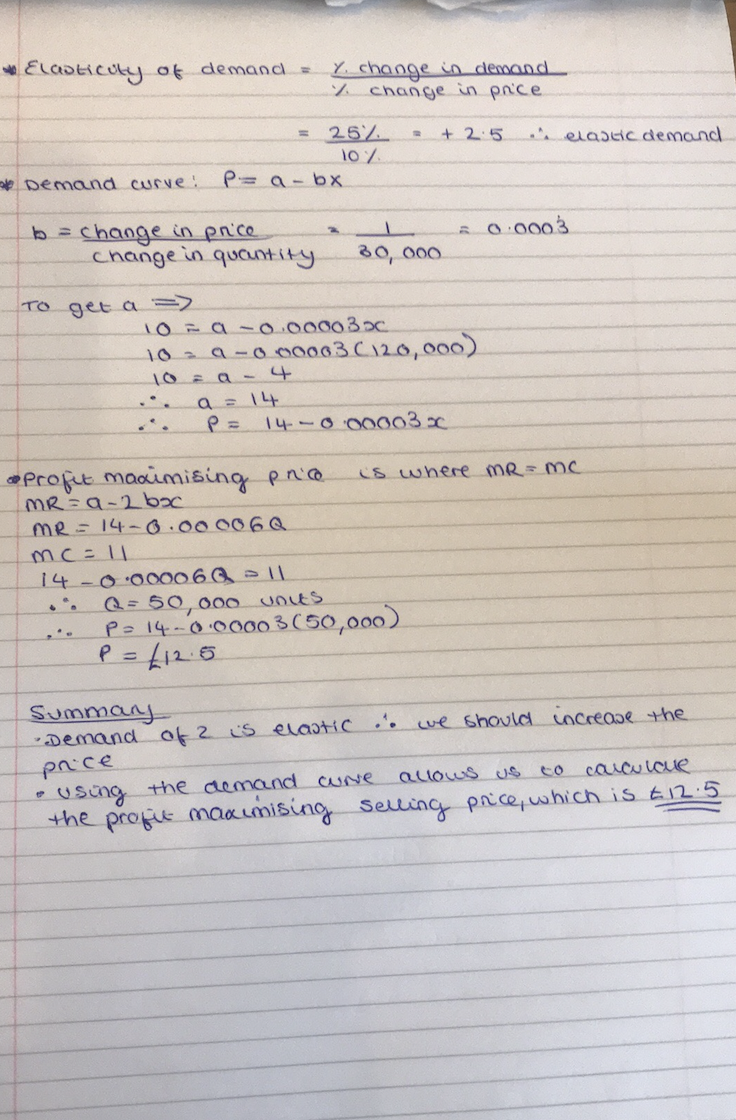 * Elasticity of demand = % change in demand
% change in price
= 25% = + 2.5 ∴ elastic demand
10%
* Demand curve: P = a - bx
b = change in price = 1 = 0.0003
change in quantity 30,000
To get a =>
10 = a - 0.00003x
10 = a - 0.00003(120,000)
10 = a - 4
∴ a = 14
∴ P = 14 - 0.00003x
• Profit maximising price is where MR = MC
MR = a - 2bx
MR = 14 - 0.00006Q
MC = 11
14 - 0.00006Q = 11
∴ Q = 50,000 units
∴ P = 14 - 0.00003(50,000)
P = £12.5
Summary
• Demand of 2 is elastic ∴ we should increase the
price
• Using the demand curve allows us to calculate
the profit maximising selling price, which is £12.5